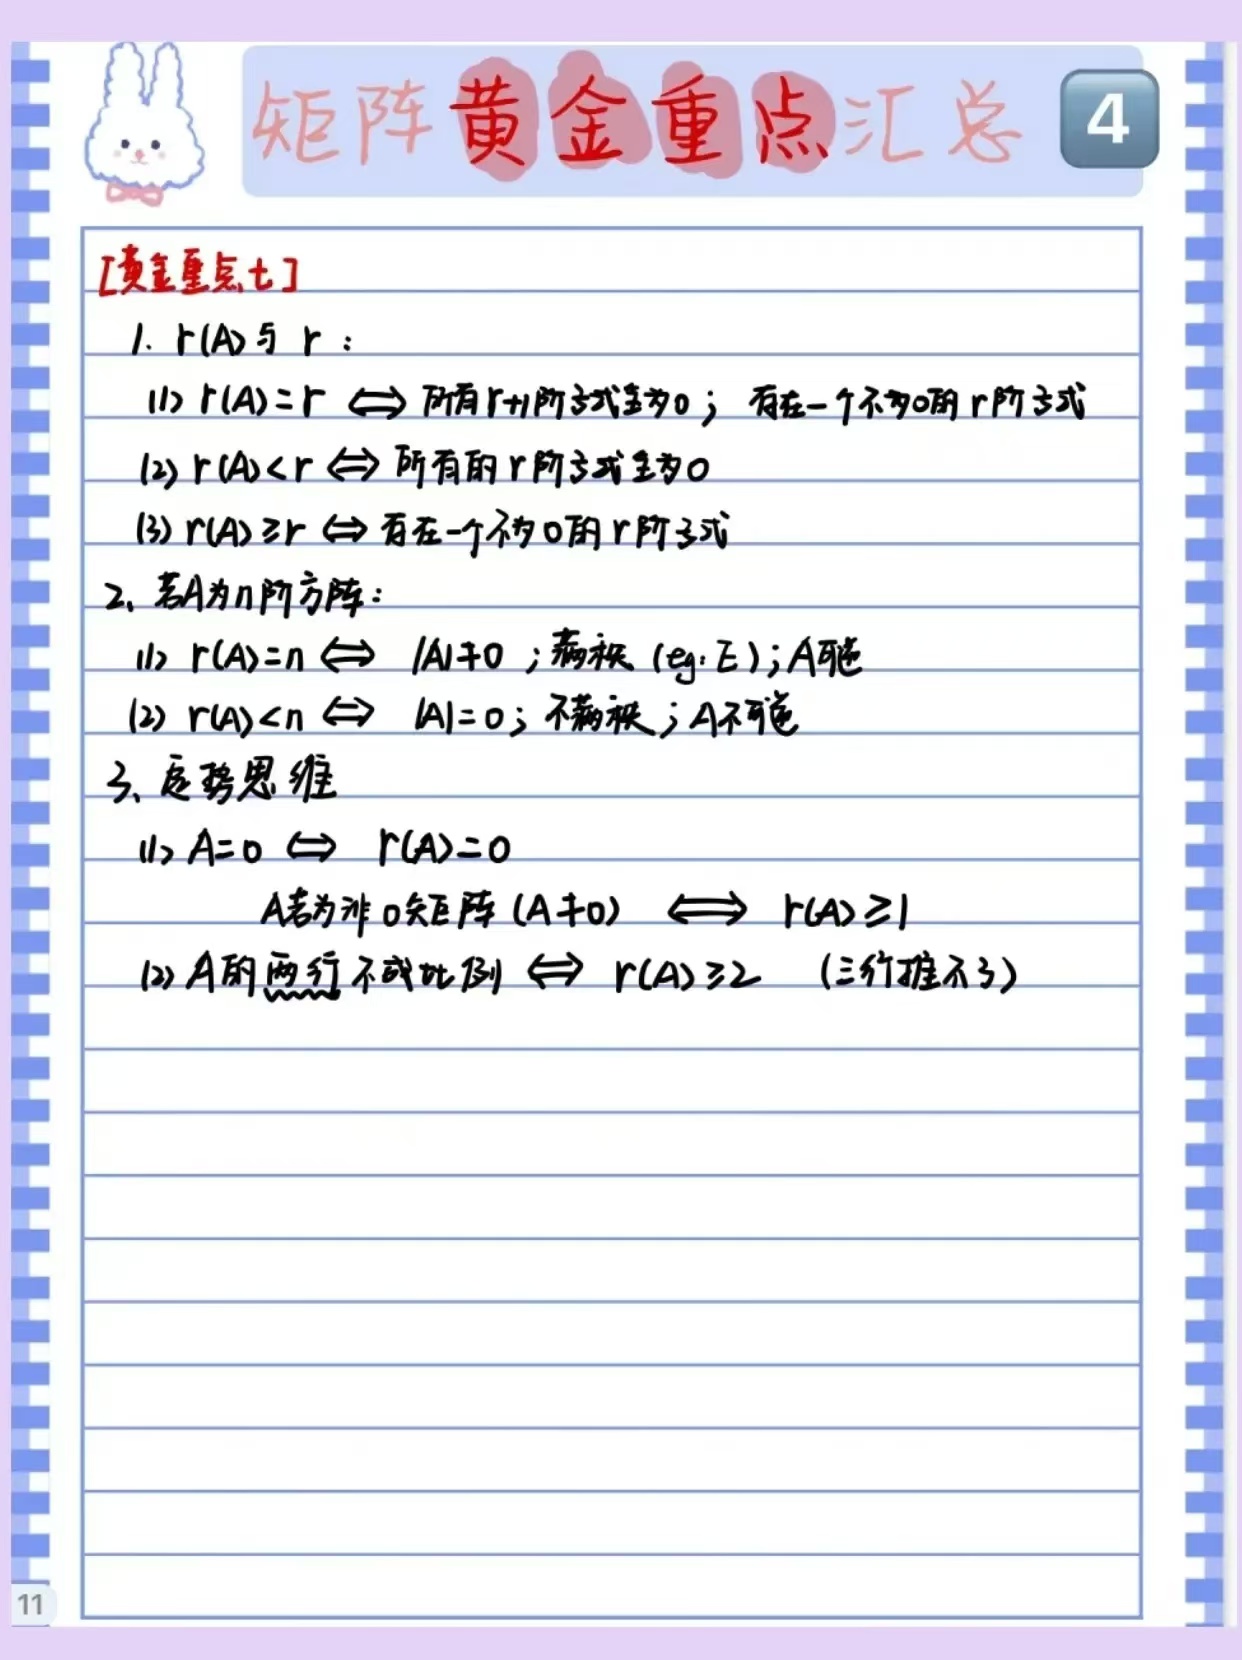 矩阵黄金重点汇总 4
[黄金重点七]
1. r(A)与 r:
(1) r(A)=r ⟺ 所有r+1阶子式全为0; 存在一个不为0的r阶子式
(2) r(A)<r ⟺ 所有的r阶子式全为0
(3) r(A)≥r ⟺ 存在一个不为0的r阶子式
2、若A为n阶方阵:
(1) r(A)=n ⟺ |A|≠0 ;满秩 (eg: E);A可逆
(2) r(A)<n ⟺ |A|=0; 不满秩;A不可逆
3、定势思维
(1) A=0 ⟺ r(A)=0
A若为非0矩阵(A≠0) ⟺ r(A)≥1
(2) A的两行不成比例 ⟺ r(A)≥2 (三行推不了)
11